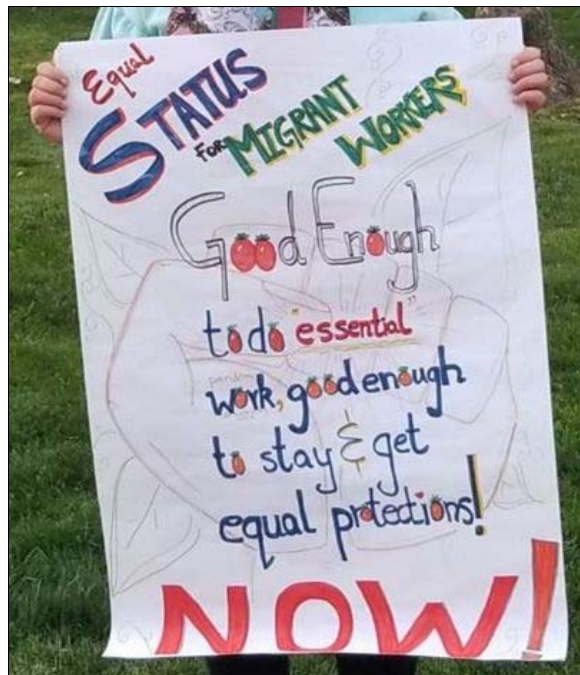 Equal
STATUS
FOR MIGRANT
WORKERS
Good Enough
to do "essential"
work, good enough
to stay & get
equal protections!
NOW!